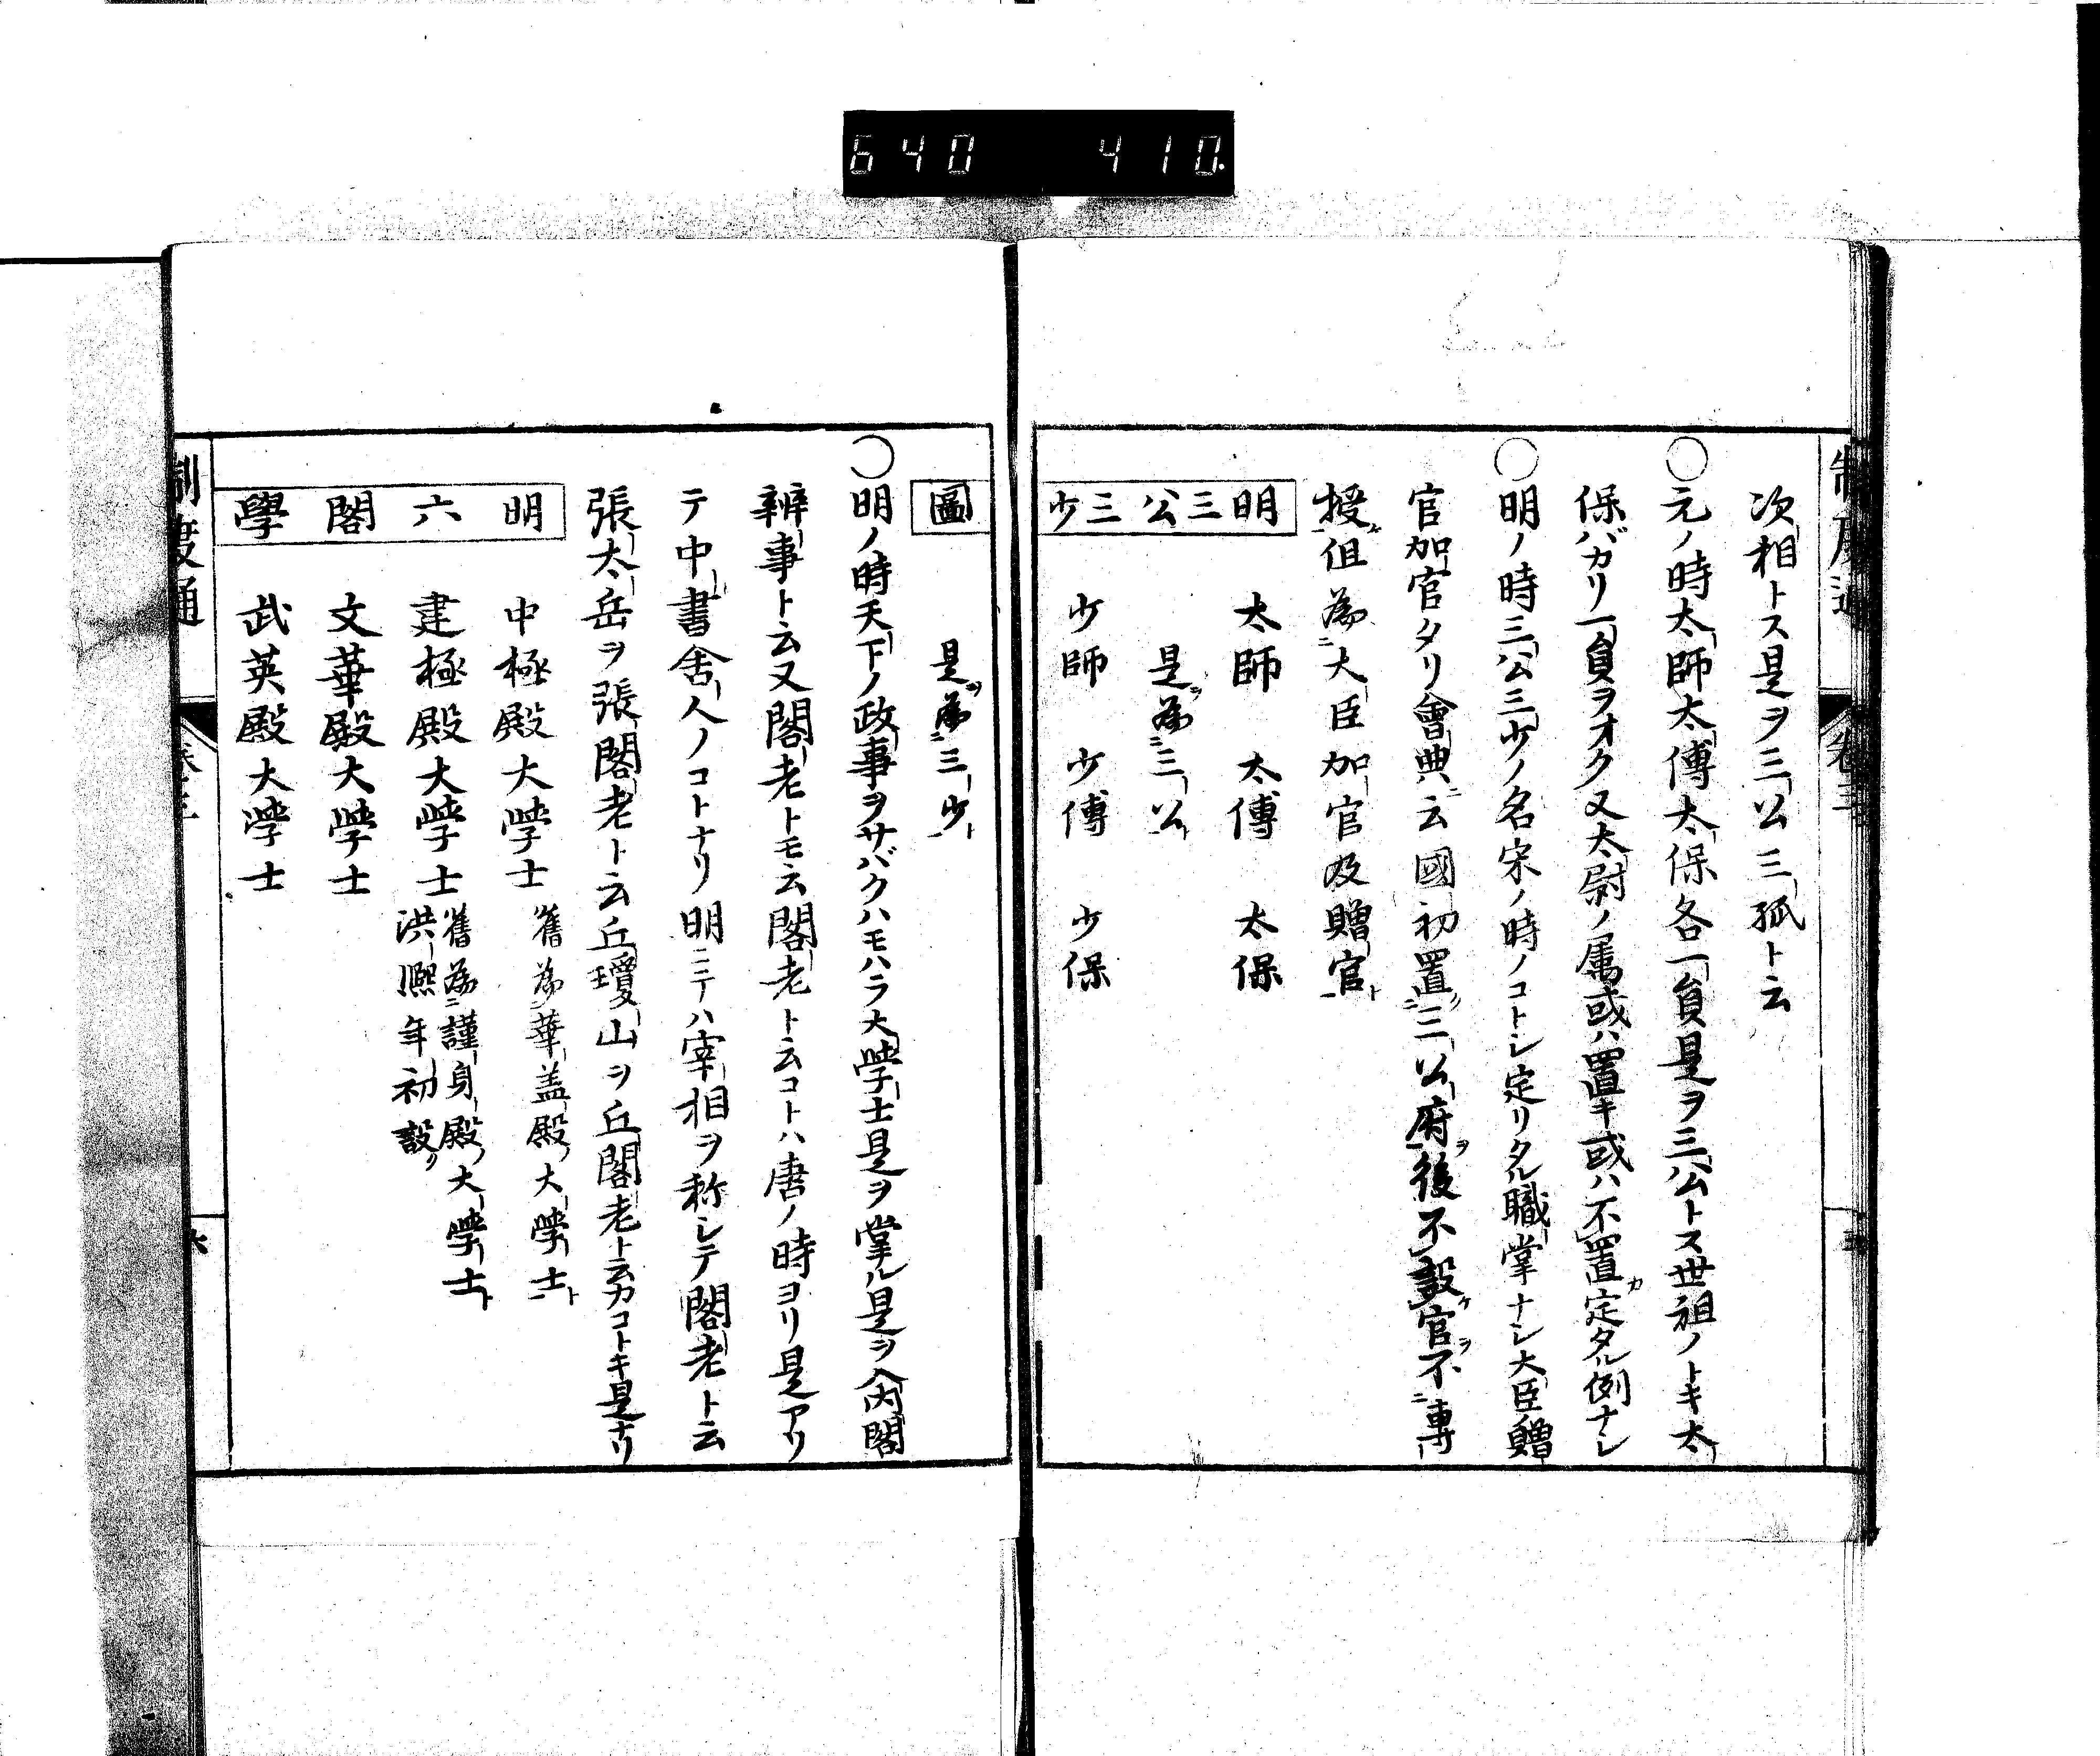 640 410.
次相トス是ヲ三公三孤ト云
〇元ノ時太師太傅太保各一員是ヲ三公トス世祖ノトキ太
保バカリ一員ヲオク又太尉ノ属或ハ置キ或ハ不置カ定タル例ナシ
〇明ノ時三公三少ノ名宋ノ時ノコトシ定リタル職掌ナシ大臣贈
官加官タリ會典ニ云國初置三公府ヲ後不設ケ官ヲ不専
授ケ但為大臣加官及贈官ト
明三公三少
太師 太傅 太保
是ヲ為三公ト
少師 少傅 少保
制度通 卷三
圖
是ヲ為三少ト
〇明ノ時天下ノ政事ヲサバクハモハラ大学士是ヲ掌ル是ヲ入内閣
辨事ト云又閣老トモ云閣老ト云コトハ唐ノ時ヨリ是アリ
テ中書舎人ノコトナリ明ニテハ宰相ヲ称シテ閣老ト云
張太岳ヲ張閣老ト云丘瓊山ヲ丘閣老ト云カコトキ是ナリ
明六閣學
中極殿大学士 舊為華盖殿大学士ト
建極殿大学士 舊為謹身殿大学士ト
洪熈年初設ク
文華殿大学士
武英殿大学士
制度通 卷三